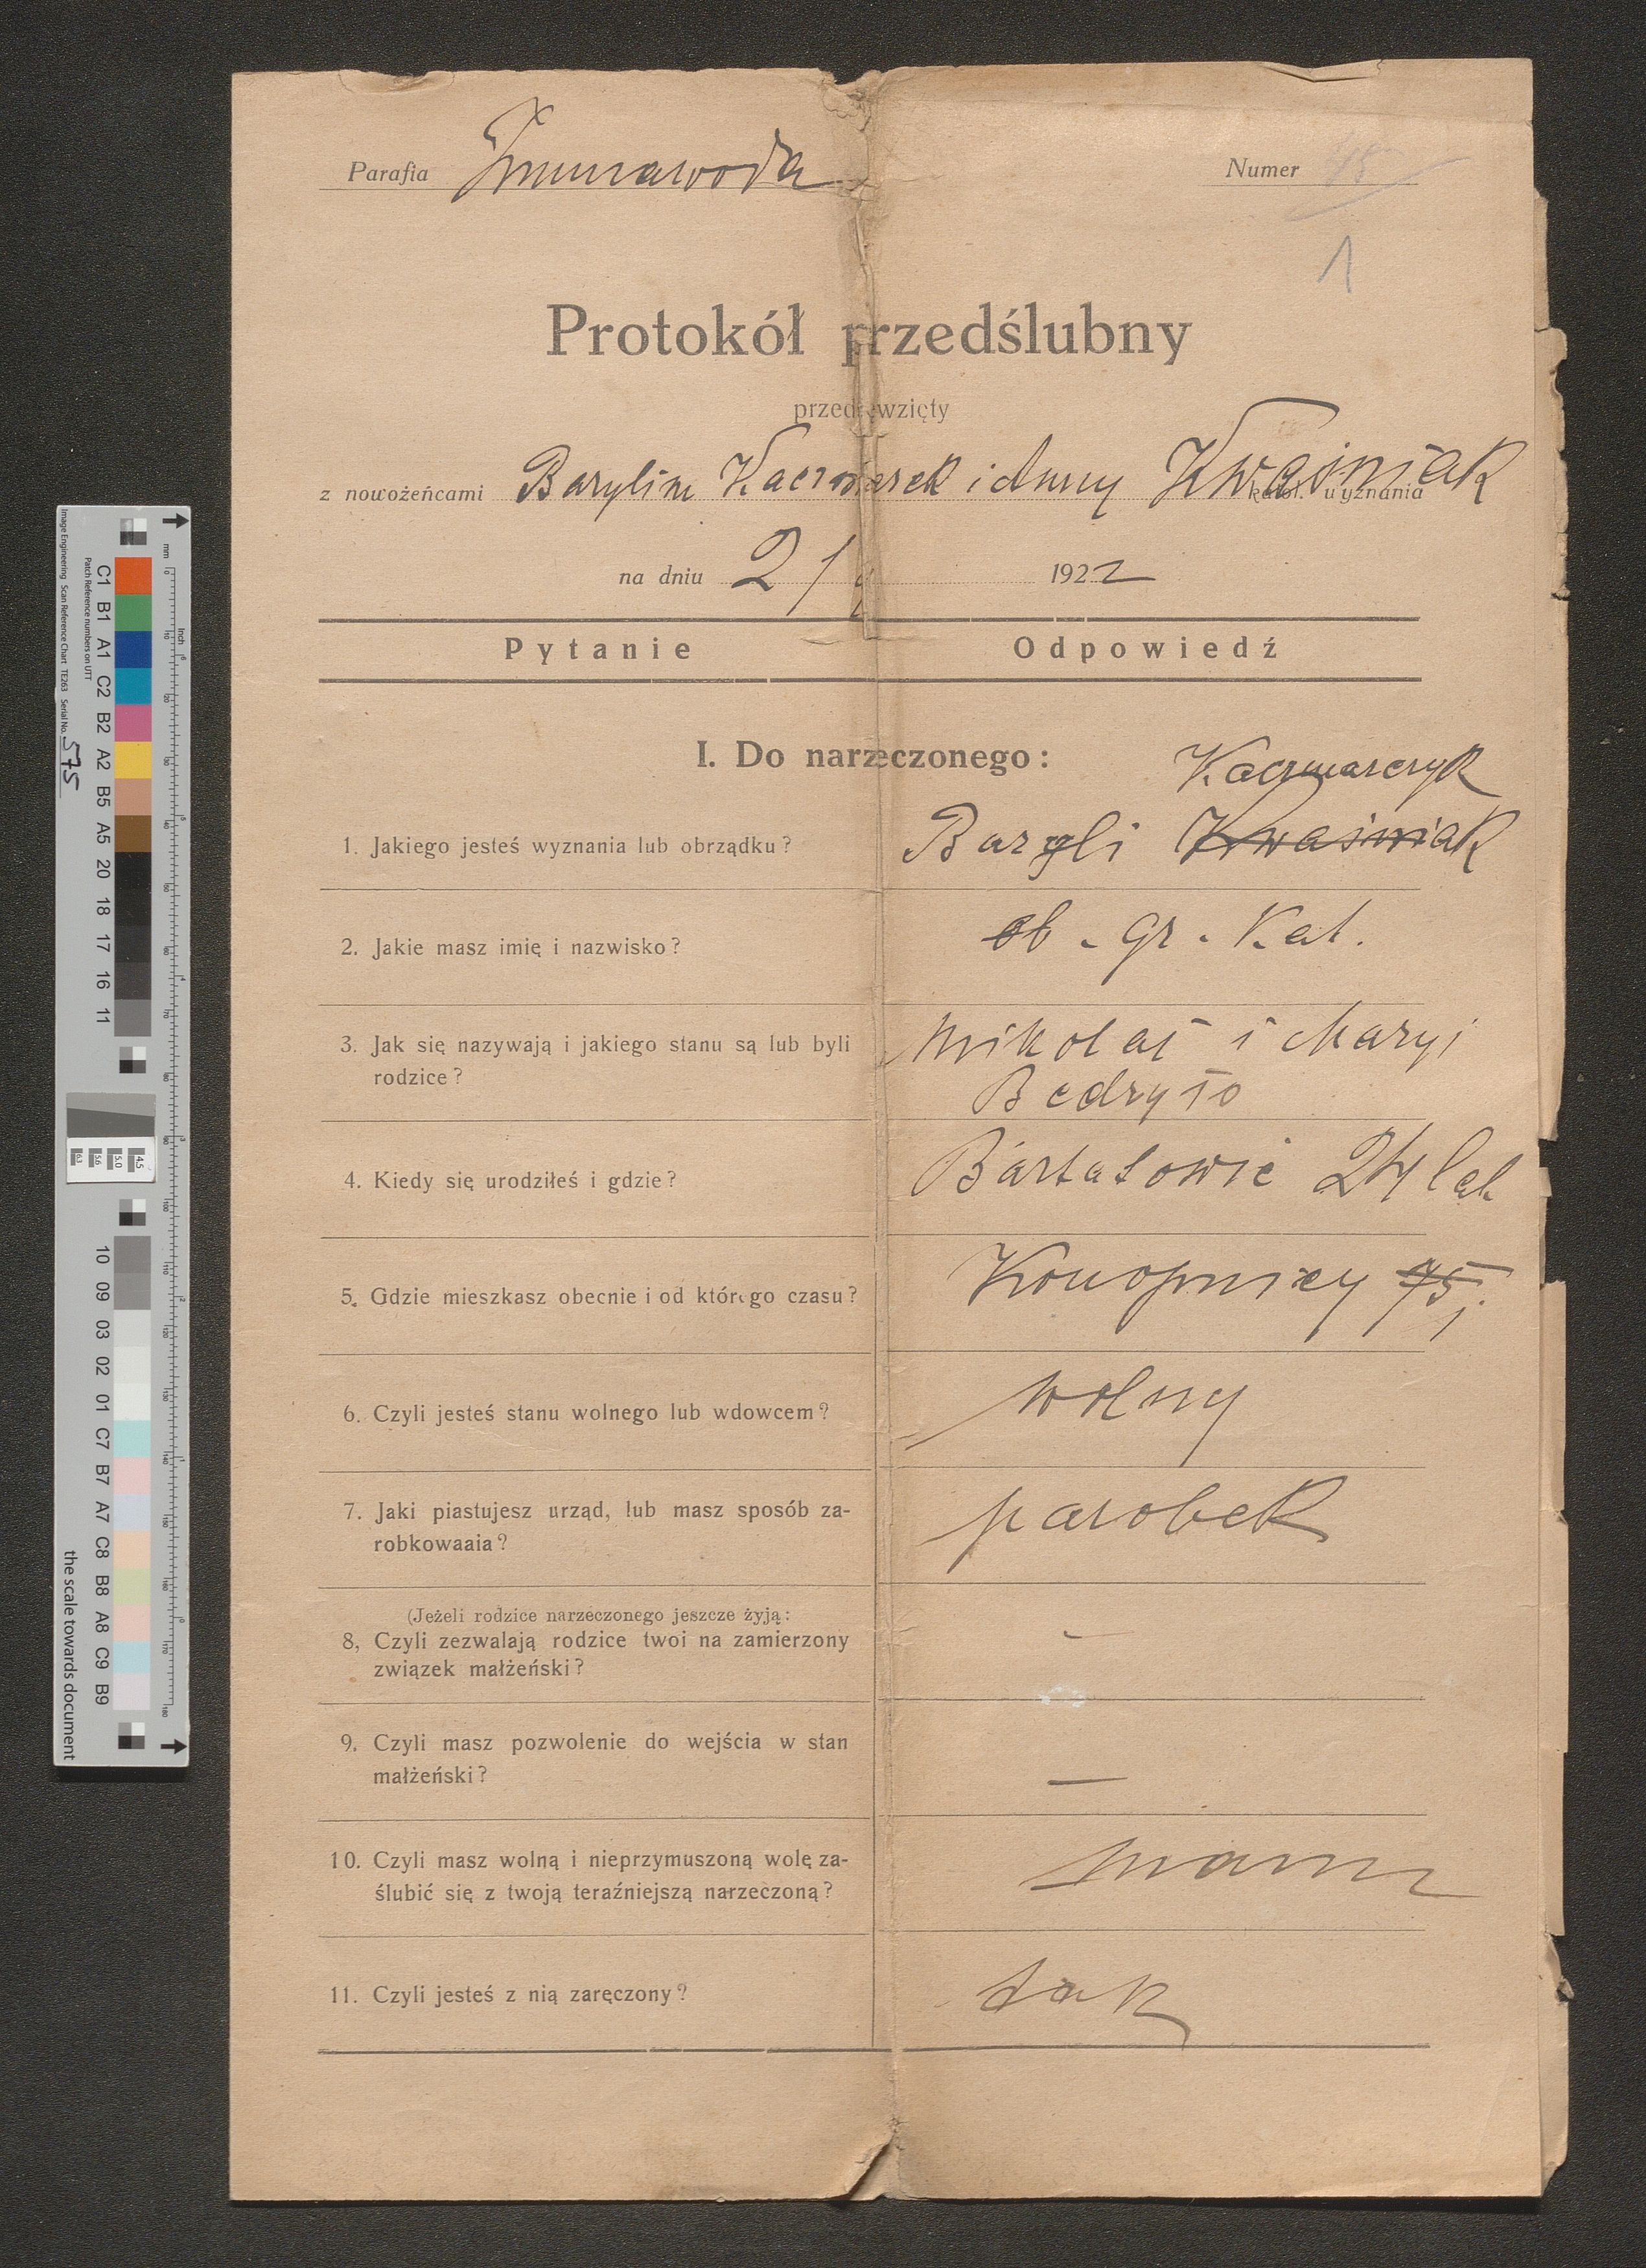 Parafia Zimnawoda Numer
1
Protokół przedślubny
przedsięwzięty
z nowożeńcami Bazylim Kaczmarek i Anny Kwaśniak katol. wyznania
na dniu 2/ 1922
Pytanie Odpowiedź
I. Do narzeczonego:
Kaczmarczyk
1. Jakiego jesteś wyznania lub obrządku? Bazyli Kwaśniak
2. Jakie masz imię i nazwisko? ob. gr. Kat.
3. Jak się nazywają i jakiego stanu są lub byli Mikołaj i Maryi
rodzice? Bedryło
4. Kiedy się urodziłeś i gdzie? Bartatowie 24 lat
5. Gdzie mieszkasz obecnie i od którego czasu? Konopnicy
6. Czyli jesteś stanu wolnego lub wdowcem? wolny
7. Jaki piastujesz urząd, lub masz sposób za-
robkowaaia? parobek
(Jeżeli rodzice narzeczonego jeszcze żyją:
8, Czyli zezwalają rodzice twoi na zamierzony -
związek małżeński?
9. Czyli masz pozwolenie do wejścia w stan
małżeński? —
10. Czyli masz wolną i nieprzymuszoną wolę za- mam
ślubić się z twoją teraźniejszą narzeczoną?
11. Czyli jesteś z nią zaręczony? tak
Image Engineering Scan Reference Chart TE263 Serial No. 575
Patch Reference numbers on UTT
C1 B1 A1 C2 B2 A2 B5 A5 20 18 17 16 11
10 09 03 02 01 C7 B7 A7 C8 B8 A8 C9 B9
the scale towards document
mm
inch